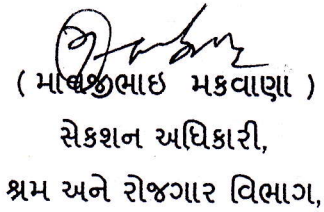 ( માવજીભાઇ મકવાણા )
સેકશન અધિકારી,
શ્રમ અને રોજગાર વિભાગ,